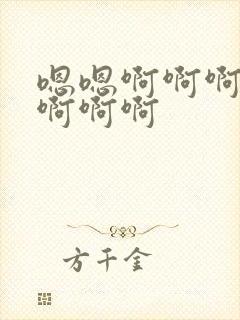 嗯嗯啊啊啊
啊啊啊
方千金